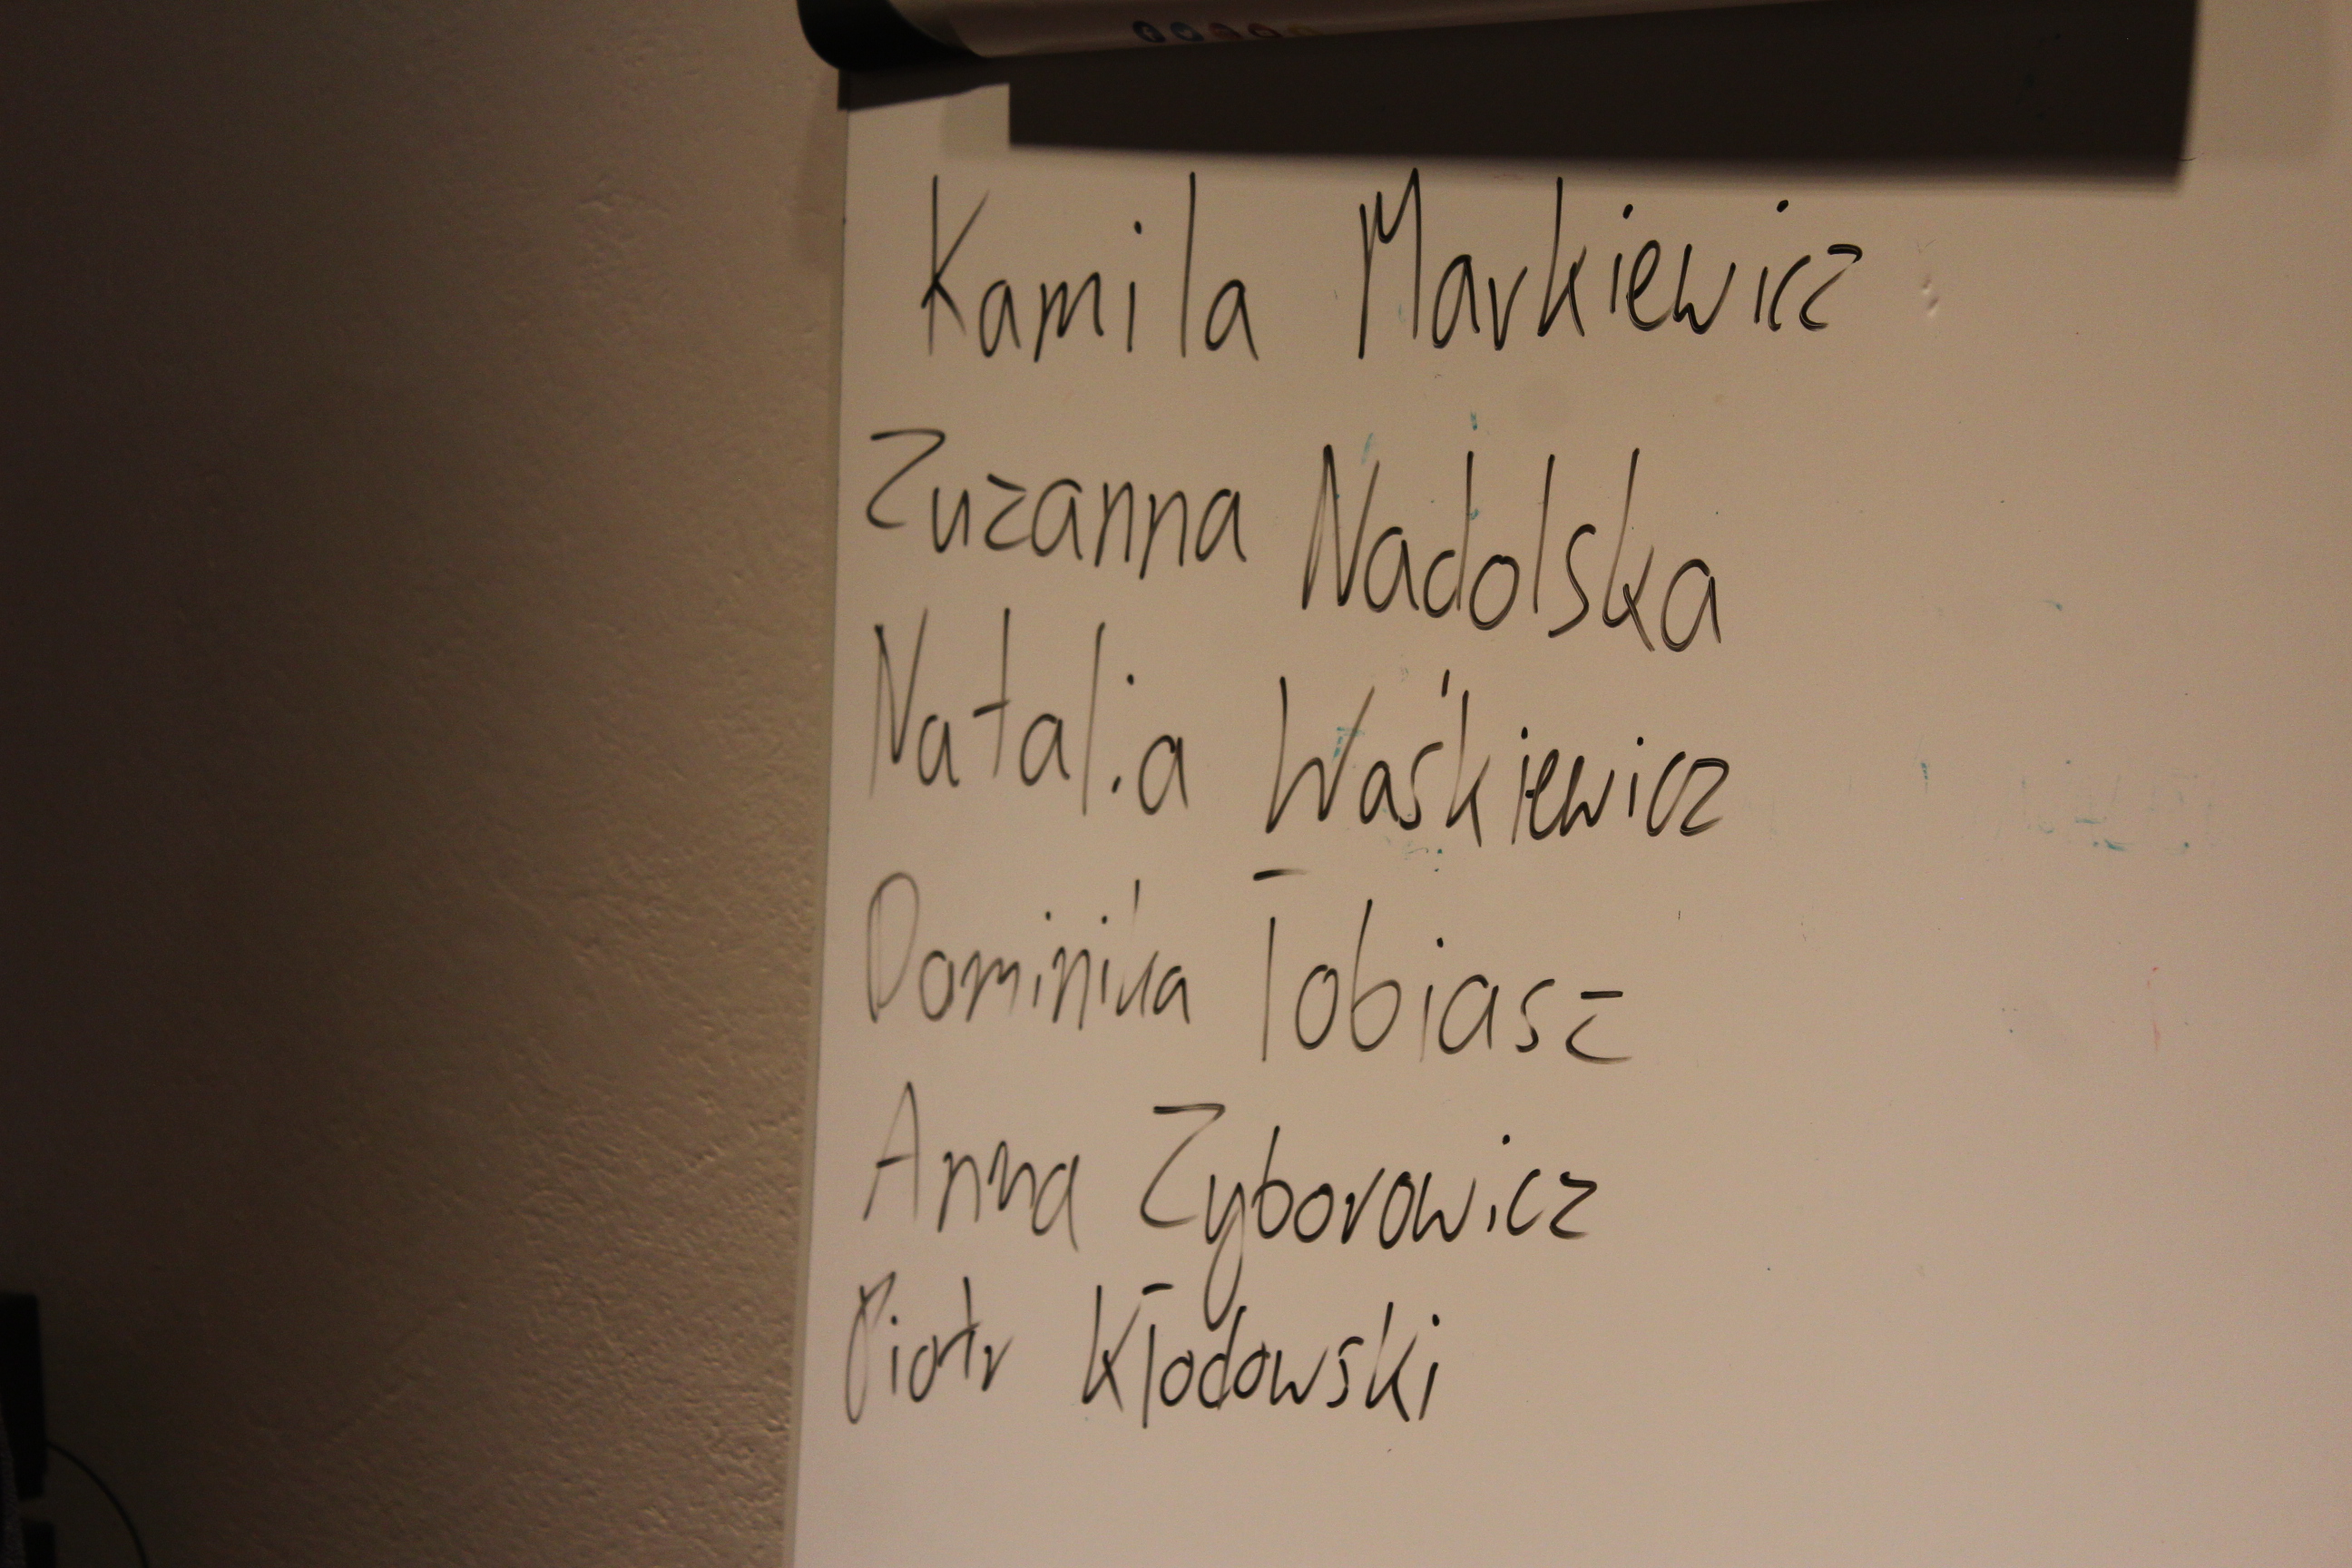 Kamila Markiewicz
Zuzanna Nadolska
Natalia Waśkiewicz
Dominika Tobiasz
Anna Zyborowicz
Piotr Kłodowski